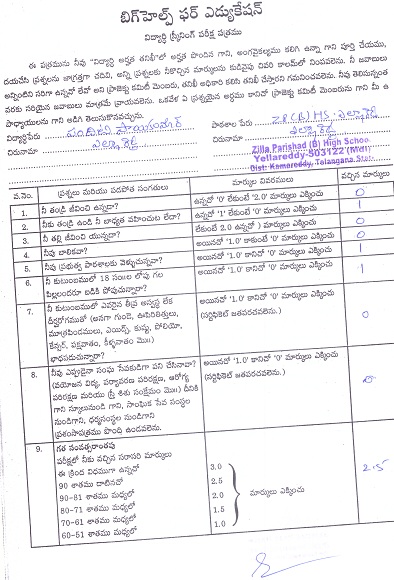 బిగ్‌హెల్ప్ ఫర్ ఎడ్యుకేషన్
విద్యార్థి స్క్రీనింగ్ పరీక్ష పత్రము
ఈ పత్రమును నీవు "విద్యార్థి అర్హత తనిఖీ"లో అర్హత పొందిన గాని, అంగవైకల్యము కలిగి ఉన్నా గాని పూర్తి చేయుము,
దయచేసి ప్రశ్నలను జాగ్రత్తగా చదివి, అన్ని ప్రశ్నలకు నీకొచ్చిన మార్కులను కుడివైపు చివరి కాలమ్‌లో నింపవలెను. నీ జవాబులు
అన్నింటిని సరిగా ఉన్నవో లేవో అని ప్రాజెక్టు కమిటీ మెంబరు, తనిఖీ అధికారి కలిసి తనిఖీ చేస్తారని గమనించవలెను. నీవు తెలిసినంత
వరకు సరియైన జవాబులు మాత్రమే వ్రాయవలెను. ఒకవేళ ఏ ప్రశ్నయైన అర్థము కానిచో ప్రాజెక్టు కమిటీ మెంబరును గాని మీ ఉ
పాధ్యాయులను గాని అడిగి తెలుసుకొనవచ్చును.
విద్యార్థిపేరు పాఠశాల పేరు ZP(B)HS ఎల్లారెడ్డి
చిరునామా ఎల్లారెడ్డి చిరునామా ఎల్లారెడ్డి
Zilla Parishad (B) High School
Yellareddy-503122 (Mdl)
Dist: Kamareddy, Telangana State
వ.నెం. ప్రశ్నలు మరియు పడపోత సంగతులు మార్కుల వివరములు వచ్చిన మార్కులు
1. నీ తండ్రి జీవించి ఉన్నడా? ఉన్నచో '0' లేకుంటే '2.0' మార్కులు ఎక్కించు 0
2. నీకు తండ్రి ఉండి నీ బాధ్యత వహించుట లేదా? ఉన్నచో '1' లేకుంటే '0' మార్కులు ఎక్కించు 1
3. నీ తల్లి జీవించి యున్నదా? లేకుంటే 2.0 ఉన్నచో ) మార్కులు ఎక్కించు 0
4. నీవు బాలికవా? అయినచో '1.0' కాకుంటే '0' మార్కులు ఎక్కించు 0
5. నీవు ప్రభుత్వ పాఠశాలకు వెళ్ళుచున్నదా? అయినచో '1.0' కానిచో '0' మార్కులు ఎక్కించు 1
6. నీ కుటుంబములో 18 సంలల లోపు గల అయినచో '1.0' కానిచో '0' మార్కులు ఎక్కించు 1
పిల్లలందరూ బడికి పోవుచున్నారా?
7. నీ కుటుంబములో ఎవరైన తీవ్ర అస్వస్థ లేక అయినచో '1.0' కానిచో '0' మార్కులు ఎక్కించు 0
దీర్ఘరోగముతో (అనగా గుండె, ఊపిరితిత్తులు, (సర్టిఫికెట్ జతపరచవలెను.)
మూత్రపిండములు, ఎయిడ్స్, కుష్టు, పోలియో,
కేన్సర్, పక్షవాతం, కీళ్ళవాతం మొ॥)
భాధపడుచున్నారా?
8. నీవు ఎప్పుడైనా సంఘ సేవకుడిగా పని చేసినావా? అయినచో '1.0' కానిచో '0' మార్కులు ఎక్కించు 0
(వయోజన విద్య, పర్యావరణ పరిరక్షణ, ఆరోగ్య (సర్టిఫికెట్ జతపరచవలెను.)
పరిరక్షణ మరియు స్త్రీ శిశు సంక్షేమం మొ॥) దీనికి
గాని స్కూలునుండి గాని, సాంఘిక సేవ సంస్థల
నుండిగాని, ధర్మసంస్థల నుండిగాని
ప్రశంసాపత్రము పొంది ఉండవలెను.
9. గత సంవత్సరాంతపు
పరీక్షలో నీకు వచ్చిన సరాసరి మార్కులు
ఈ క్రింద విధముగా ఉన్నచో
90 శాతము దాటినచో 3.0
90-81 శాతము మధ్యలో 2.5
80-71 శాతము మధ్యలో 2.0 మార్కులు ఎక్కించు 2.5
70-61 శాతము మధ్యలో 1.5
60-51 శాతము మధ్యలో 1.0